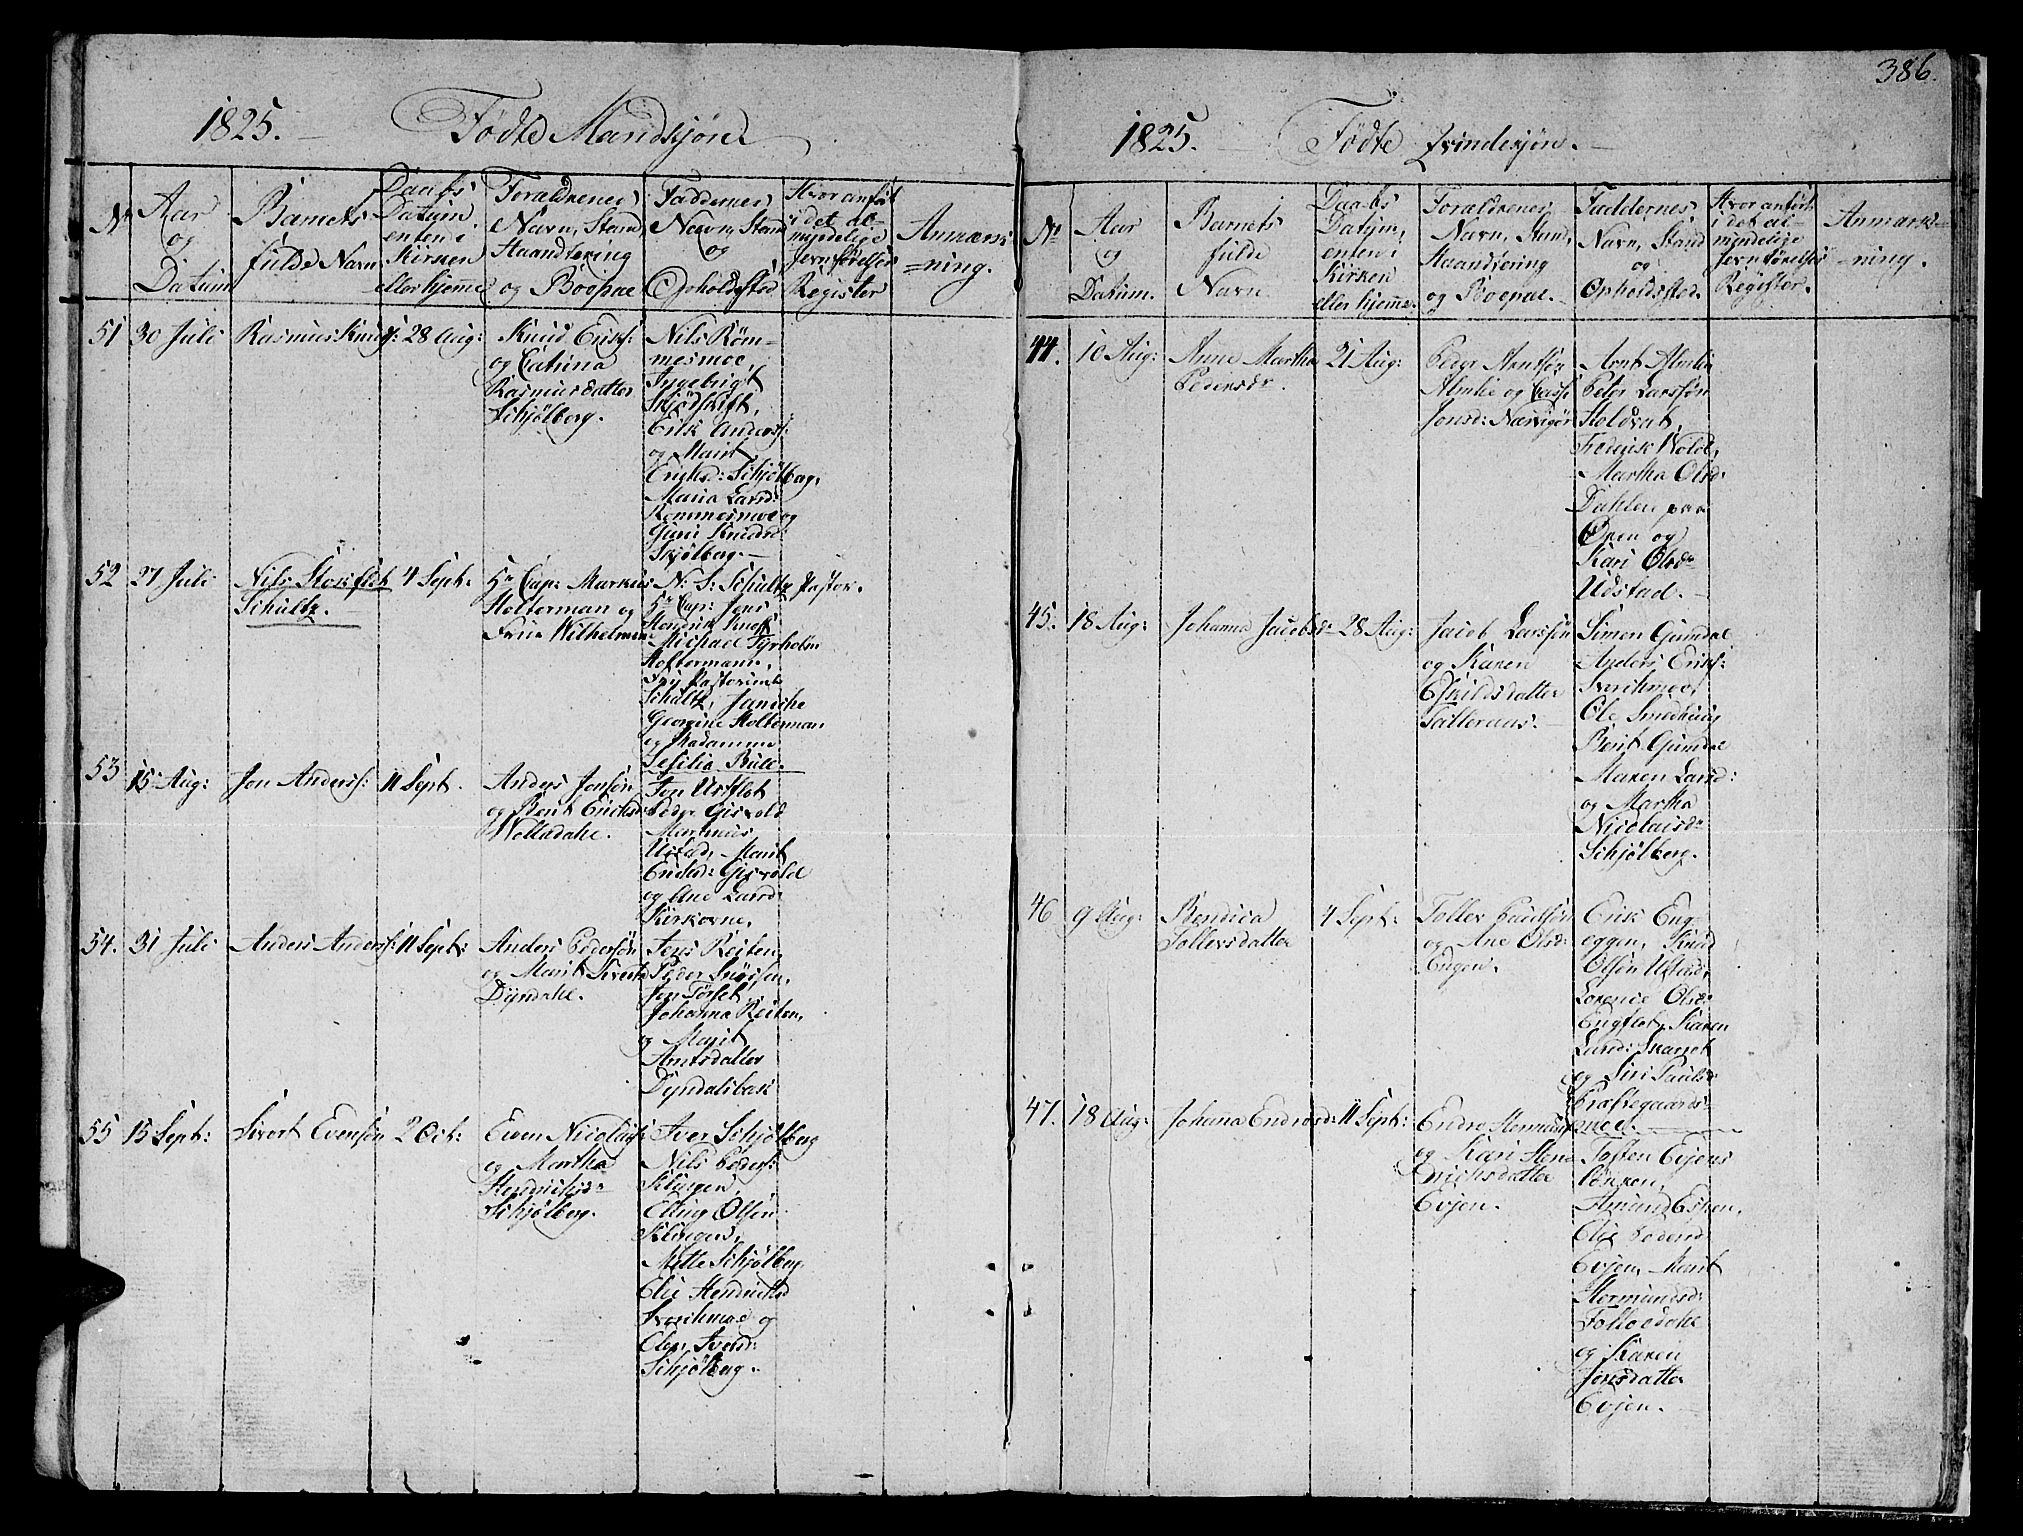 386.
1825. — Fødte Mandkjøn
No
Aar
og
Datum
Barnets
fulde Navn
Daabs
Datum
enten i
Kirken
eller hjemme
Forældrenes
Navn, Stand
Haandtering
og Boepæl
Faddernes
Navn, Stand
og
Opholdssted
Hvor anført
i det al-
mindelige
Jevnførelses
Register
Anmærk
=ning.
51
30 Juli
Rasmus Knuds:
28 Aug:
Knud Eriks:
og Catrina
Rasmusdatter
Schjølberg.
Nils Røm-
mesmoe,
Ingebrigt
Skjødskift,
Erik Anders:
og Marit
Ericksd: Schjølberg,
Maria Larsd:
Rommesmoe og
Guri Knudsd:
Skjølberg. —
52
27 Juli
Nils Stokflet
Schultz. —
4 Sept:
Hr Cap: Markus
Holterman og
Frue Wilhelmine
N: S: Schultz Pastor.
Hr Cap: Jens
Hendrik Knoff
Michael Tyrholm
Holtermann,
Frue Pastorinde
Schultz, Janiche
Georgine Holterman
og Madamme
Cesilia Bull. —
53
15 Aug:
Jon Anders:
11 Sept.
Anders Jonsøn
og Berit Ericksd:
Wolledahl.
Jon Ustflot
Peder Gisvold
Markus
Ustad, Marit
Ericksd: Gisvold
og Ane Larsd:
Kirkovne.
54.
31 Juli
Anders Anders:
11 Sept:
Anders Pedersøn
og Marit
Dyndahl.
Jens Reiten,
Peder
Jon Torset,
Johanna Reiten,
og Marit
Arntsdatter
Dyndalsbak
55
15 Sept:
Sivert Evensøn
2 Oct:
Even Nicolays:
og Martha
Hendrichsdr
Schjølberg.
Iver Schjølberg
Nils Peders:
Klingen,
Elling Olsen
Klingen,
Mette Schjølberg
Elie Hendrichsd
Svorkmoe og
Elen Iversd:
Schjølberg. —
1825. — Fødte Qvindekjøn. —
No
Aar
og
Datum.
Barnets
fulde
Navn
Daabs
Datum,
enten i
Kirken
eller hjemme.
Forældrenes
Navn, Stand,
Haandtering
og Boepæl. —
Faddernes
Navn, Stand
og
Opholdssted.
Hvor anført
i det al-
mindelige
Jevnførelses
Register.
Anmærk=
=ning.
44.
10 Aug:
Anne Martha
Pedersdr.
21 Aug:
Peder Arntsøn
Almlie og
Jonsd: Narvigør
Arnt Almlie
Peter Larssøn
Holdvat,
Frederik Wold,
Martha Olsd:
Dahlen paa
Øren og
Kari Olsdr
Udstad. —
45.
18 Aug:
Johanna Jacobsdr
28 Aug:
Jacob Larssøn
og Karen
Eskildsdatter
Tatteraas. —
Simon Gumdal
Anders Eriks:
Svorkmoe
Ole Smedhaug
Berit Gumdal
Maren Larsd:
og Martha
Nicolaisdr
Schjølberg.
46
9 Aug:
Bendica
Tollersdatter
4 Sept:
Toller Paulsøn
og Ane Olsd:
Engen.
Erik Eng-
eggen, Knud
Olsøn Ustad,
Lorence Olsd:
Engflot, Karen
Larsd: Skarset
og Siri Paulsd
Præstegaards-
moe. —
47.
18 Aug:
Johana Endresd:
11 Sept:
Endre
og Kari
Erichsdatter
Evjen.
Tosten Evjens
Lønken,
Amund Estien,
Elie Pedersd
Evjen, Marit
Hermundsd:
Follosdahl
og Karen
Jonsdatter
Evjen. —